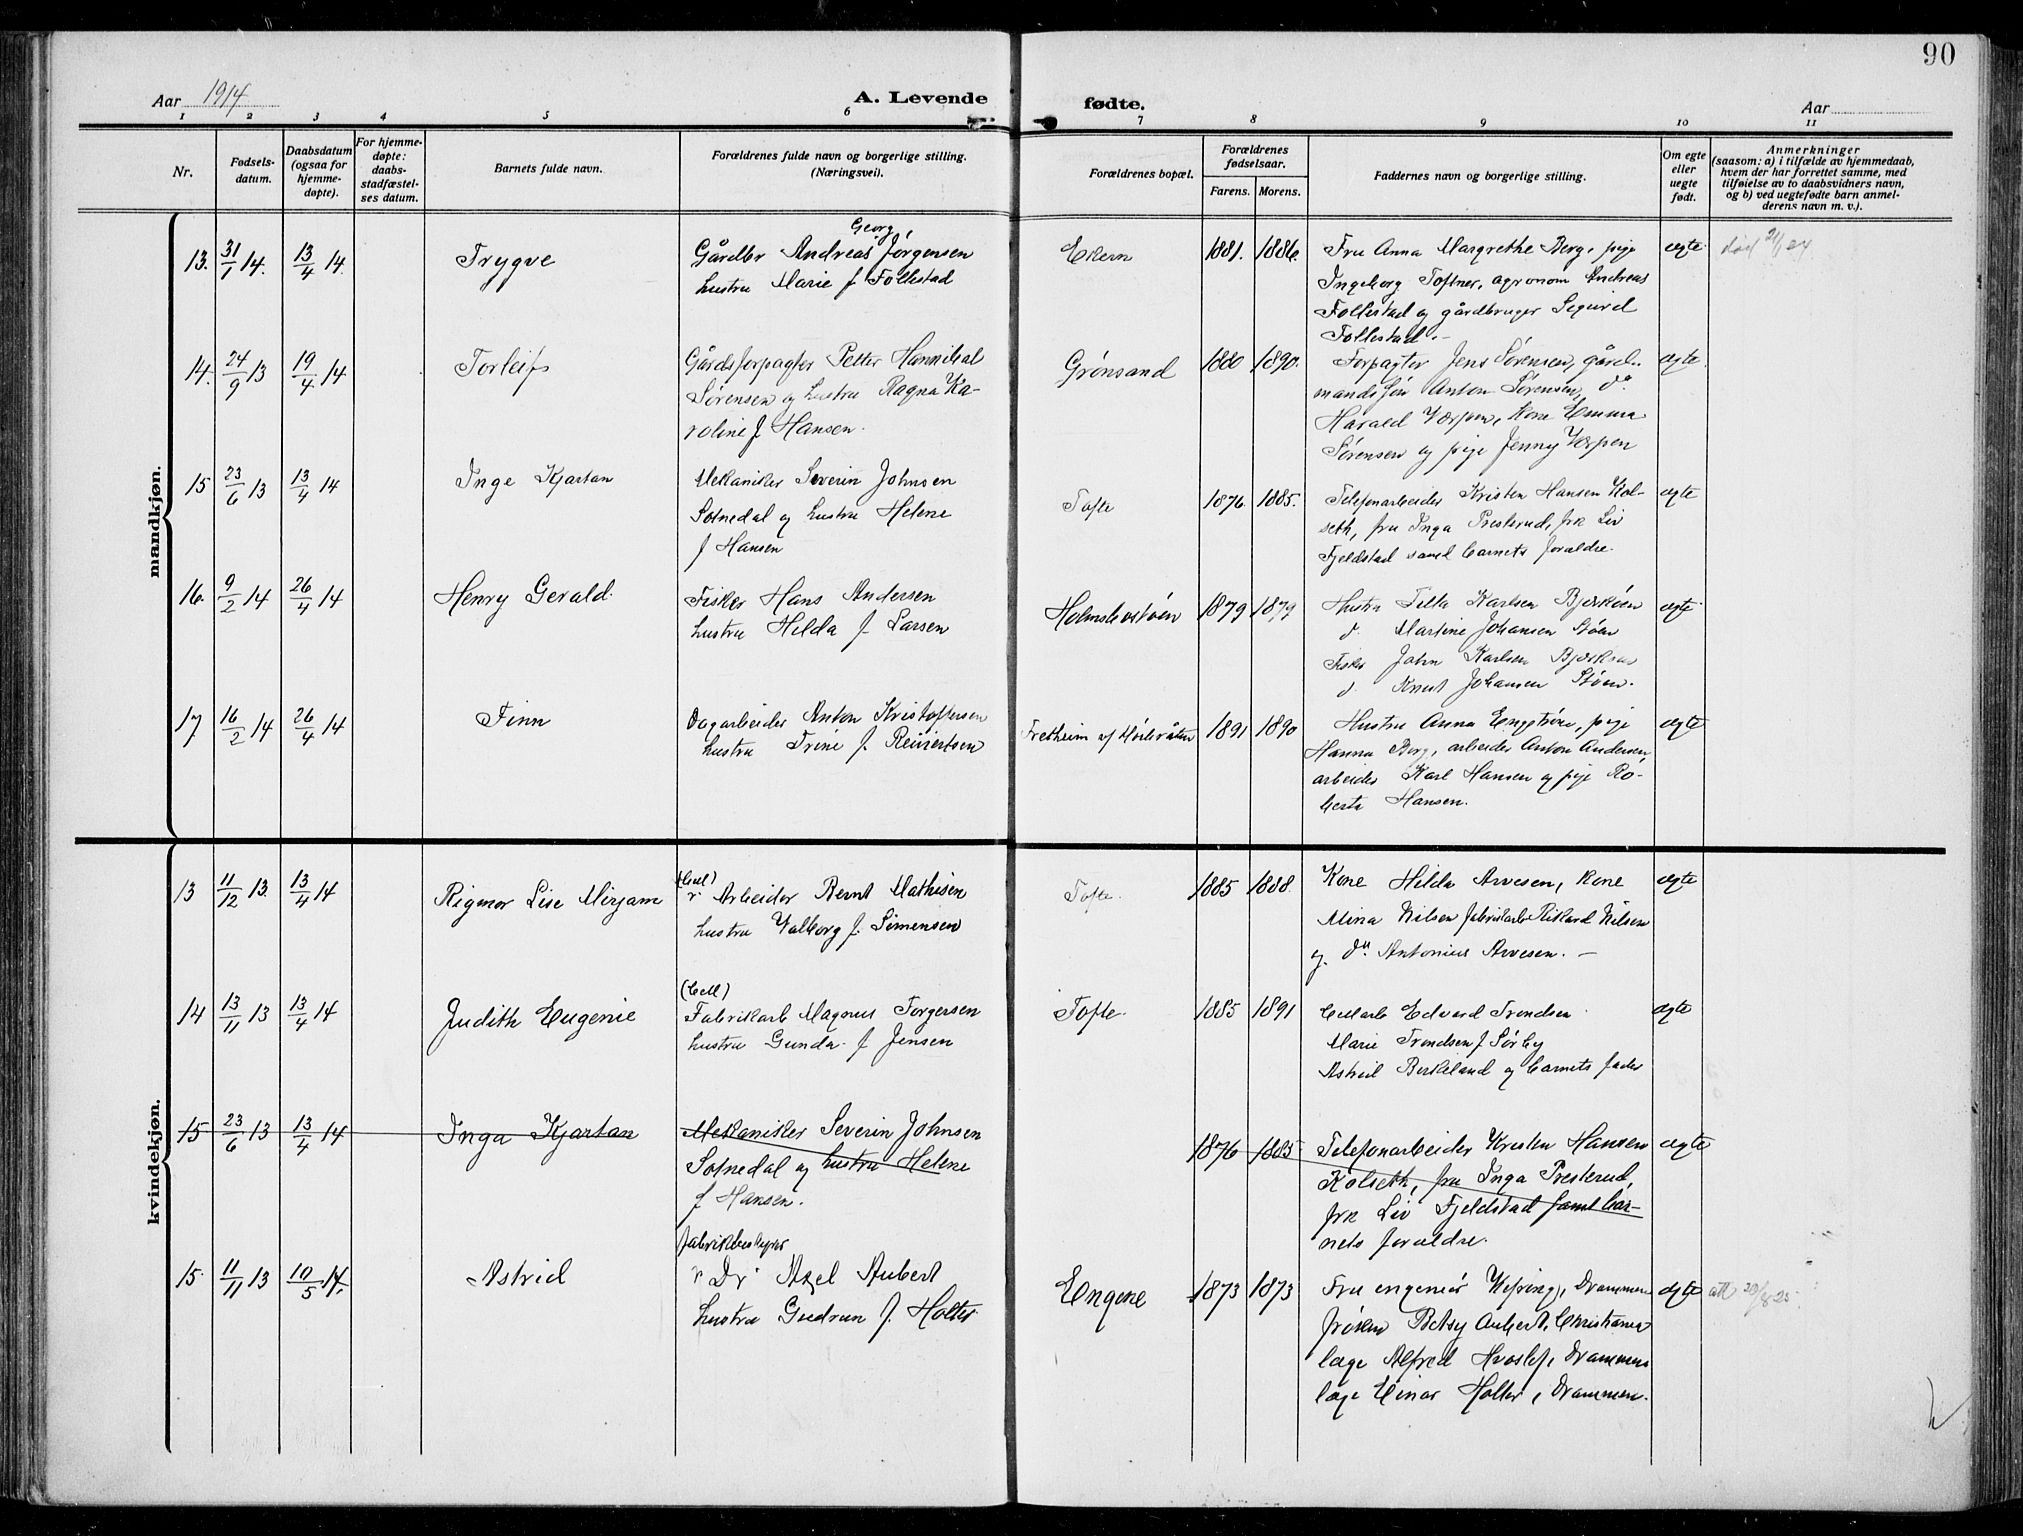 90
Aar 1914
A. Levende
fødte.
Aar
1 2 3 4 5 6 7 8 9 10 11
Nr.
Fødsels-
datum.
Daabsdatum
(ogsaa for
hjemme-
døpte).
For hjemme-
døpte:
daabs-
stadfæstel-
ses datum.
Barnets fulde navn.
Forældrenes fulde navn og borgerlige stilling.
(Næringsvei).
Forældrenes bopæl.
Forældrenes
fødselsaar.
Farens. Morens.
Faddernes navn og borgerlige stilling.
Om egte
eller
uegte
født.
Anmerkninger
(saasom: a) i tilfælde av hjemmedaab,
hvem der har forrettet samme, med
tilføielse av to daabsvidners navn,
og b) ved uegtefødte barn anmel-
derens navn m. v.).
mandkjøn.
13. 31/1 14. 13/4 14 Trygve
Georg
Gårdbr Andreas Jørgensen
hustru Marie f Follestad
Ekern 1881. 1886.
Fru Anna Margrethe Berg, pige
Ingeborg Toftner, agronom Andreas
Follestad og gårdbruger Sigurd
Follestad.-
ægte død 21/1 24.
14. 24/9 13 19/4 14 Torleif
Gårdsforpagter Petter Hannibal
Sørensen og hustru Ragna Ka-
roline f Hansen.
Grønsand 1880 1890.
Forpagter Jens Sørensen, gård-
mandssøn Anton Sørensen, do
Harald Verpen, kone Emma
Sørensen og pige Jenny Verpen
ægte.
15 23/6 13 13/4 14 Inge Kjartan
Mekaniker Severin Johnsen
Solnedal og hustru Helene
f Hansen
Tofte 1876. 1885.
Telefonarbeider Kristen Hansen Kol-
seth, fru Inga Presterud, frk Liv
Fjeldstad samt barnets foraldre.
ægte
16. 9/2 14 26/4 14 Henry Gerald.
Fisker Hans Andersen
hustru Hilda f Larsen
Holmsbostøen 1879 1879
Hustru Tilla Karlsen Bjerkøen
d. Martine Johansen Støen
Fisker John Karlsen
d. Knut Johansen Støen.
ægte
17 16/2 14 26/4 14 Finn
Dagarbeider Anton Kristoffersen
hustru Trine f. Reiiertsen
Fretheim af 1891 1890
Hustru Anna Engstrøm, pige
Hanna Berg, arbeider Anton Andersen,
arbeider Karl Hansen og pige Ro-
berta Hansen.
ægte
kvindekjøn.
13 11/12 13. 13/4 14 Rigmor Lise Mirjam
(Cell)
Arbeider Bernt Mathisen
hustru Valborg f. Simensen
Tofte. 1885 1888.
Kone Hilda Arvesen, kone
Mina Nilsen fabrikarb Rikard Nilsen
og. do Antonius Arvesen. -
ægte
14 13/11 13 13/4 14 Judith Eugenie
(Cell)
Fabrikarb Magnus Torgersen
hustru Gunda f Jensen
Tofte. 1885 1891
Cellarb Edvard Trondsen
Marie Trondsen f Sørby
Astrid Berkeland og barnets fader
ægte
15 23/6 13 13/4 14 Inga Kjartan
Mekaniker Severin Johnsen
Solnedal og hustru Helene
f Hansen.
1876 1885
Telefonarbeider Kristen Hansen
Kolseth, fru Inga Presterud,
frk Liv Fjeldstad samt bar-
nets foraldre.
ægte
15. 11/11 13 10/5 14. Astrid
fabrikbestyrer
Dr Axel Aubert
hustru Gudrun f. Holter
Engene 1873 1873
Fru engeniør, Drammen
frøken Betsy Aubert, Christiania
læge Alfred Hvoslef, Drammen
læge Einar Holter, Drammen.
ægte att 20/8 25